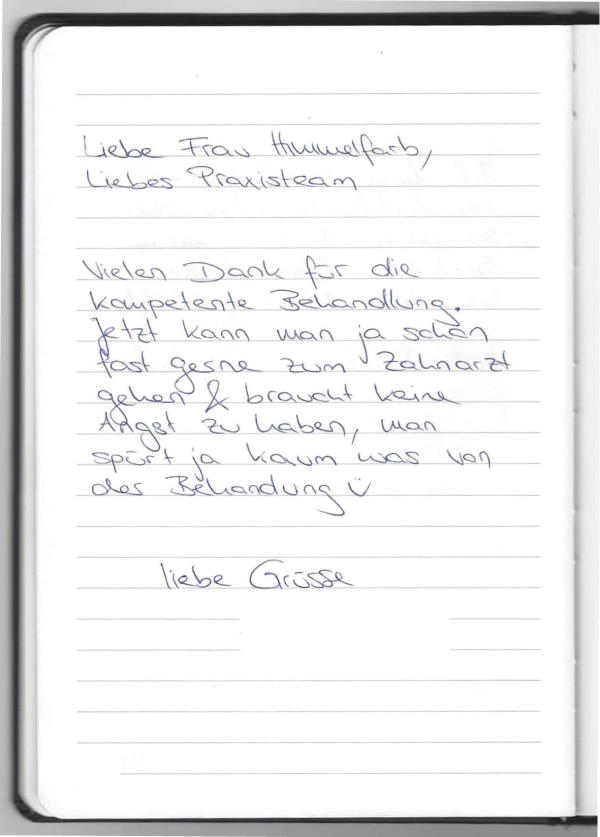 Liebe Frau Himmelfarb,
Liebes Praxisteam
Vielen Dank für die
kompetente Behandlung.
Jetzt kann man ja schon
fast gerne zum Zahnarzt
gehen & braucht keine
Angst zu haben, man
spürt ja kaum was von
der Behandung ü
liebe Grüsse